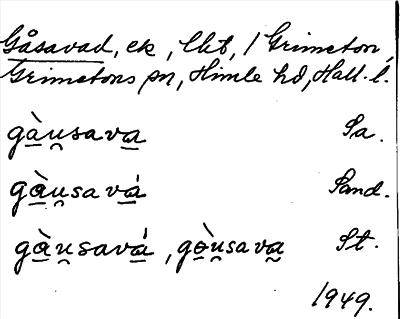 Gåsavad, ek, lht, / Grimeton,
Grimetons sn, Himle hd, Hall. l.
gàu̯sava Sa.
gàu̯savá Sand.
gàu̯savá, gòu̯sava St.
1949.